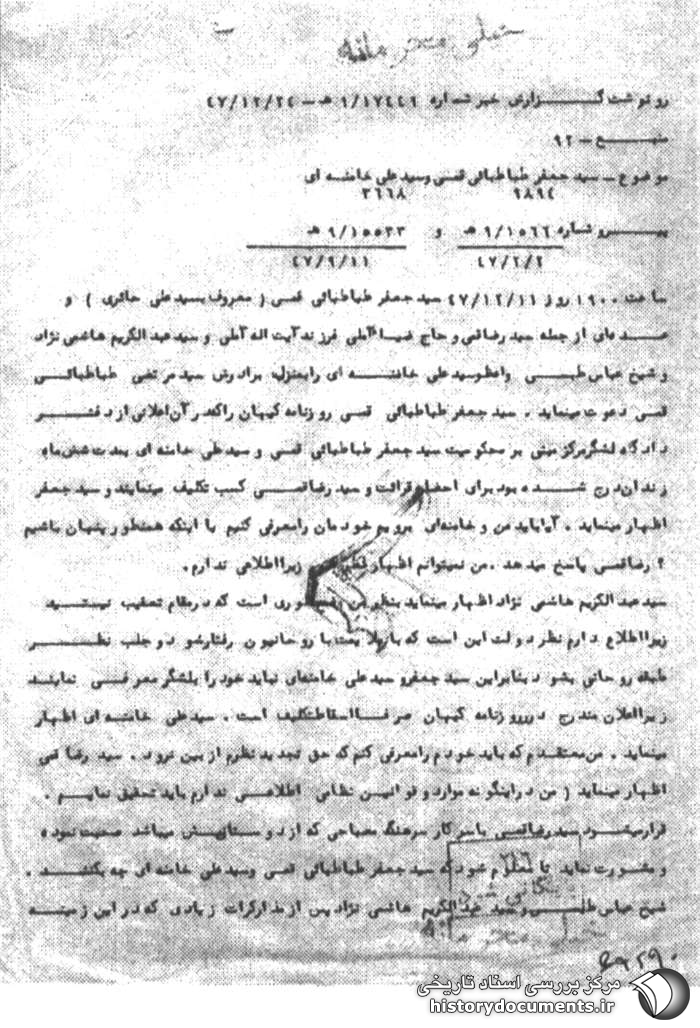 خیلی محرمانه
رونوشت گزارش خبر شماره ۹/۱۷۴۴۹ هـ - ۴۷/۱۲/۲۴
منبع - ۹۲
موضوع - سید جعفر طباطبائی قمی و سید علی خامنه ای
۹۸۹٤ ۳٦٦۸
پیرو شماره ۹/۱۵٦٦ هـ و ۹/۱۵۵۳۳ هـ
۴۷/۲/۲ ۴۷/۹/۱۱
ساعت ۱۹۰۰ روز ۴۷/۱۲/۱۱ سید جعفر طباطبائی قمی ( معروف بسید علی حائری ) و
عده ای از جمله سید رضا قمی و حاج ضیاء آملی فرزند آیت اله آملی و سید عبد الکریم هاشمی نژاد
و شیخ عباس طبسی واعظ و سید علی خامنه ای را بمنزل برادرش سید مرتضی طباطبائی
قمی دعوت مینماید . سید جعفر طباطبائی قمی روزنامه کیهان را که در آن اعلانی از دفتر
دادگاه لشگر مرکز مبنی بر محکومیت سید جعفر طباطبائی قمی و سید علی خامنه ای بمدت شش ماه
زندان درج شده بود برای احضار قرائت و سید رضا قمی کسب تکلیف مینمایند و سید جعفر
اظهار مینماید . آیا باید من و خامنه ای برویم خودمان را معرفی کنیم یا اینکه همینطور پنهان باشیم
؟ رضا قمی پاسخ میدهد . من نمیتوانم اظهار زیرا اطلاعی ندارم .
سید عبد الکریم هاشمی نژاد اظهار مینماید بنظر من است که در مقام تعقیب نیستید
زیرا اطلاع دارم نظر دولت این است که با با روحانیون رفتار شود و جلب نظر
طبقه روحانی بشود بنابراین سید جعفر و سید علی خامنه ای نباید خود را بلشگر معرفی نمایند
زیرا اعلان مندرج در روزنامه کیهان صرفا اسقاط تکلیف است . سید علی خامنه ای اظهار
مینماید . من معتقدم که باید خودم را معرفی کنم که حق تجدید نظرم از بین نرود . سید رضا قمی
اظهار مینماید ( من در اینگونه موارد و قوانین نظامی اطلاعی ندارم باید تحقیق نمایم .
قرار میشود سید رضا قمی با سرکار سرهنگ مصباحی که از دوستانش میباشد صحبت نموده
و مشورت نماید تا معلوم شود که سید جعفر طباطبائی قمی و سید علی خامنه ای چه بکنند .
شیخ عباس طبسی و سید عبد الکریم هاشمی نژاد پس از مذاکرات زیادی که در این زمینه
بایگانی شود
خیلی محرمانه
مرکز بررسی اسناد تاریخی
historydocuments.ir